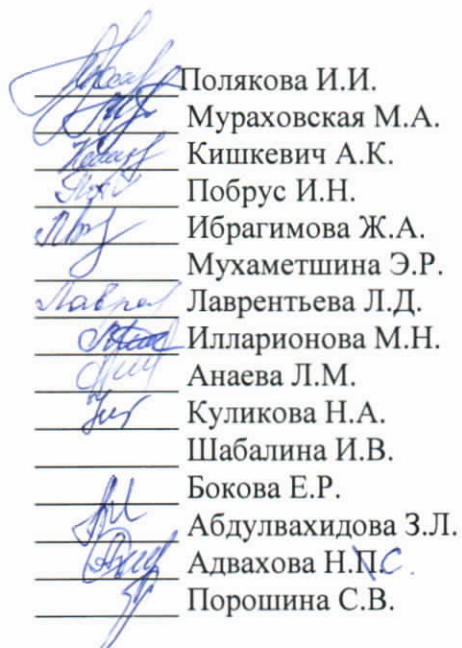 Полякова И.И.
Мураховская М.А.
Кишкевич А.К.
Побрус И.Н.
Ибрагимова Ж.А.
Мухаметшина Э.Р.
Лаврентьева Л.Д.
Илларионова М.Н.
Анаева Л.М.
Куликова Н.А.
Шабалина И.В.
Бокова Е.Р.
Абдулвахидова З.Л.
Адвахова Н.П.С.
Порошина С.В.